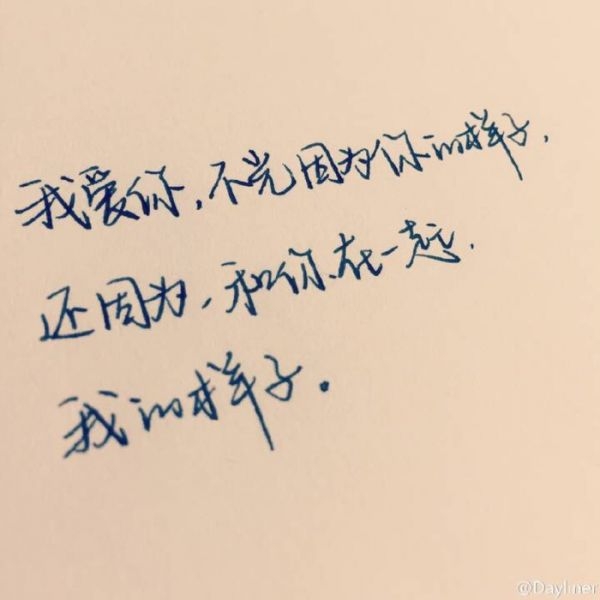 我爱你,不光因为你的样子,
还因为,和你在一起.
我的样子。
@Dayliner